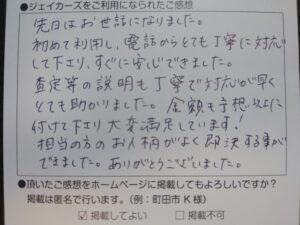 ●ジェイカーズをご利用になられたご感想
先日はお世話になりました。
初めて利用し、電話からとても丁寧に対応
して下さり、すぐに安心できました。
査定等の説明も丁寧で対応が早く
とても助かりました。金額も予想以上に
付けて下さり大変満足しています!
担当の方のお人柄がよく即決する事が
できました。ありがとうございました。
●頂いたご感想をホームページに掲載してもよろしいですか?
掲載は匿名で行います。(例:町田市 K様)
☑掲載してよい □掲載不可